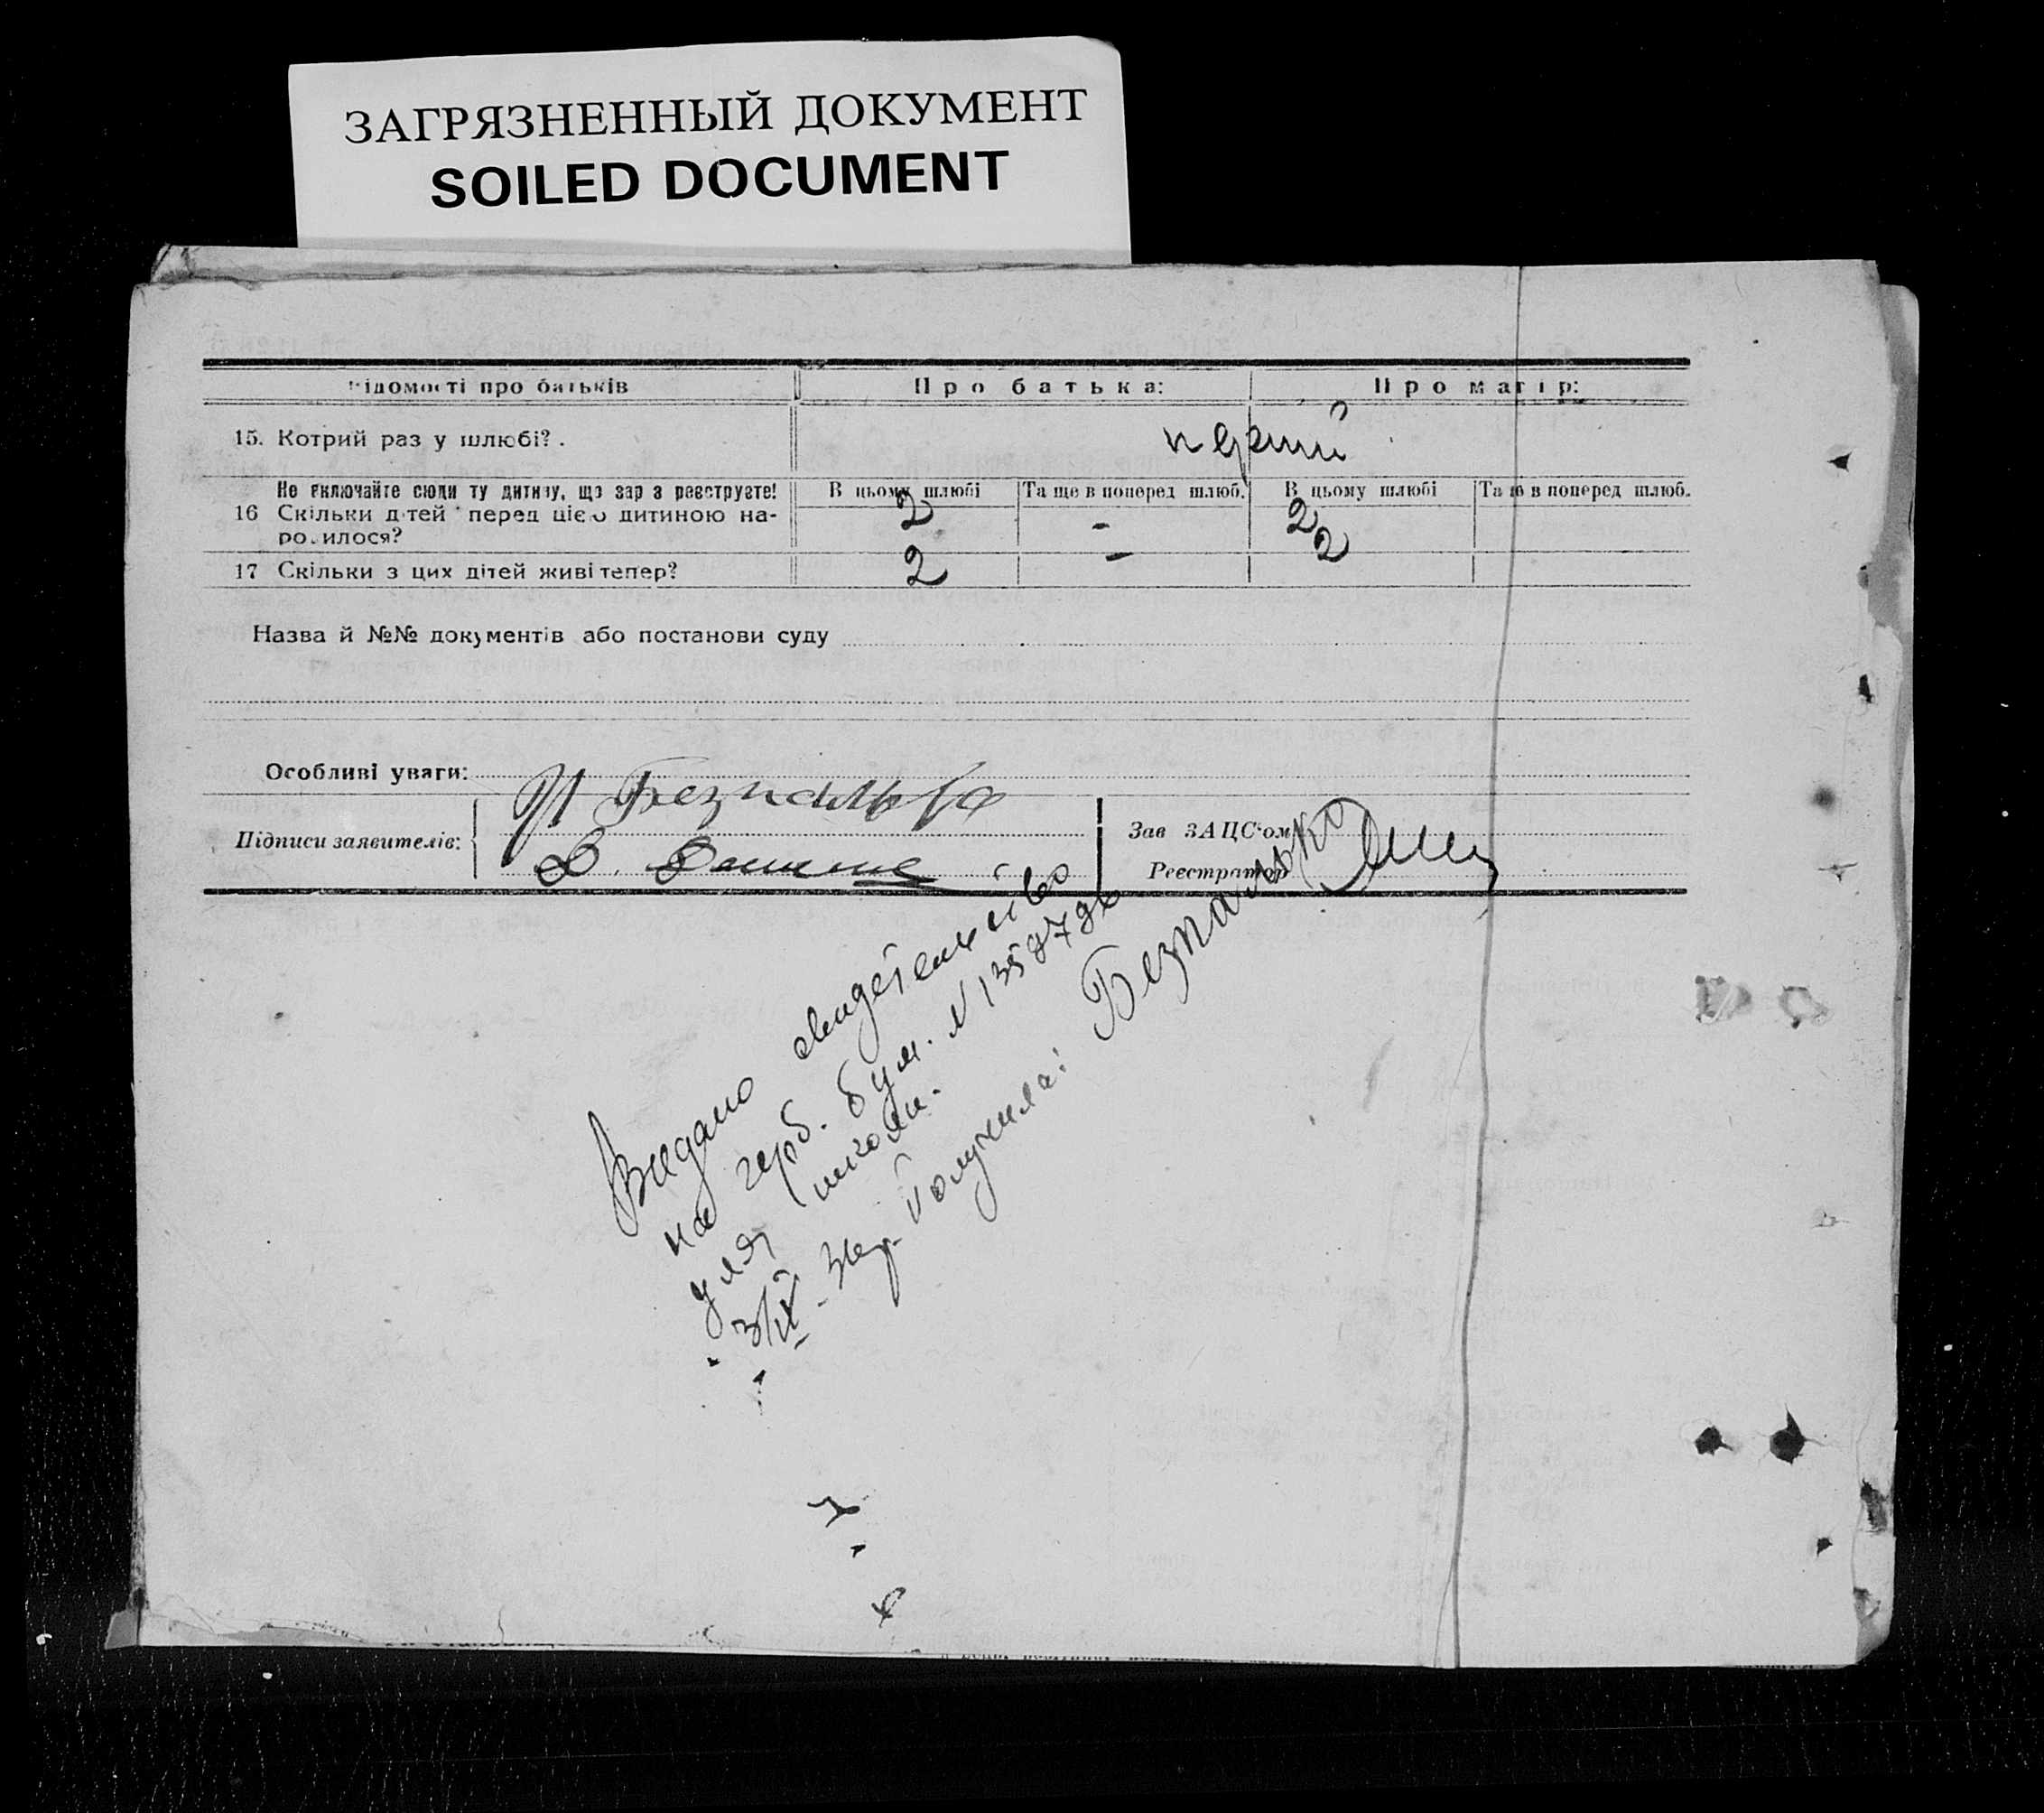 ЗАГРЯЗНЕННЫЙ ДОКУМЕНТ
SOILED DOCUMENT
Відомості про батьків Про батька: Про матір:
15. Котрий раз у шлюбі?. перший
Не включайте сюди ту дитину, що зараз реєструєте! В цьому шлюбі Та ще в поперед шлюб. В цьому шлюбі Та ще в поперед шлюб.
16 Скільки дітей перед цією дитиною на-
родилося? 2 - 2
17 Скільки з цих дітей живі тепер? 2 - 2
Назва й №№ документів або постанови суду
Особливі уваги:
Підписи заявителів:
Зав ЗАЦС'ом
Реєстратор
Видано свидетельство
на герб. бум. N
для школи.
Получила: Безпалько